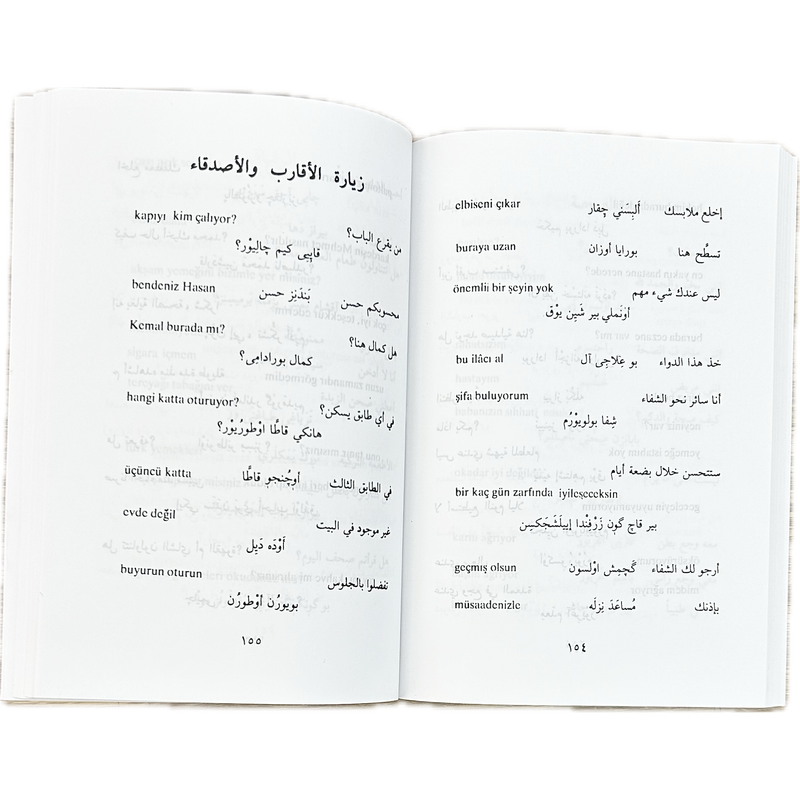 إخلع ملابسك أَلبِسَني چِقار elbiseni çıkar
تسطَّح هنا بورايا أوزان buraya uzan
ليس عندك شيء مهم önemlii bir şeyin yok
اوْنَملي بير شَيِن يوْق
خذ هذا الدواء بو عِلاجِى آل bu ilâcı al
أنا سائر نحو الشفاء şifa buluyorum
شِفا بولويوْرُم
ستتحسن خلال بضعة أيام
bir kaç gün zarfında iyileşeceksin
بير قاچ گون زَرْفِندا إييلَشَجَكسِن
أرجو لك الشفاء گَچمِش اوْلسون geçmiş olsun
بإذنك مُساعَدَ نِزلَه müsaadenizle
١٥٤
زيارة الأقارب والأصدقاء
kapıyı kim çalıyor?
من يقرع الباب؟
قاپِيى كيم چالِيوْر؟
محسوبكم حسن بَندَنِز حسن bendeniz Hasan
هل كمال هنا؟ Kemal burada mı?
كمال بورادامِى؟
في أي طابق يسكن؟ hangi katta oturuyor?
هانكي قاطًا اوْطورُيوْر؟
في الطابق الثالث اوچُنجو قاطًا üçüncü katta
غير موجود في البيت evde değil
أوْدَه دَيِل
تفضلوا بالجلوس buyurun oturun
بويورُن أوْطورُن
١٥٥